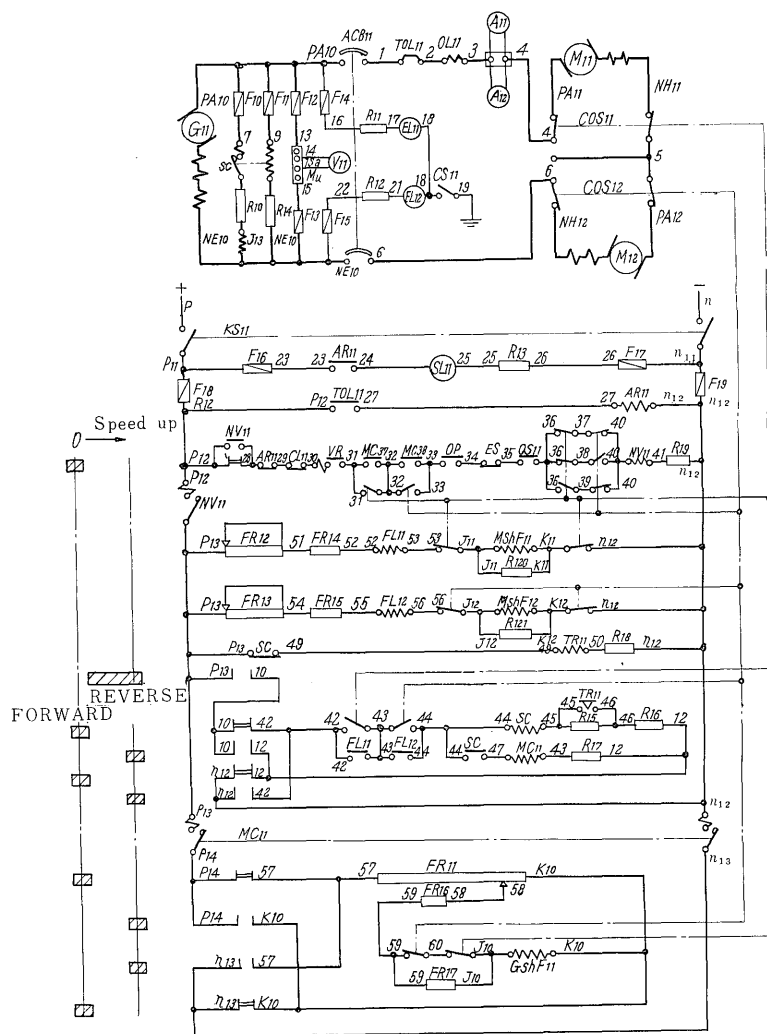 A11
PA10 ACB11 1 TOL11 2 OL11 3 4
A12
M11
PA10 F10 F11 F12 F14
PA11 NH11
G11
16 R11 17 EL11 18
COS11
7 9 13 4
14
SC 15a V11
Mu
15
5
22 R12 21 EL12 18 CS11 19
6 COS12
R10 R14 F13 F15
NH12 PA12
NE10 J13 NE10
NE10 6
M12
+ −
P n
KS11
P11 F16 23 23 AR11 24 SL11 25 25 R13 26 26 F17 n11
F18 F19
R12 P12 TOL11 27 27 AR11 n12 n12
0 Speed up
NV11
P12 28 AR11 29 CL11 30 VR 31 MC37 32 MC38 33 OP 34 ES 35 OS11 36 37 40
36 38 40 NV11 41 R19
n12
31 32 33 36 39 40
P12
NV11
P13 FR12 51 FR14 52 52 FL11 53 53 J11 MShF11 K11 n12
J11 R120 K11
P13 FR13 54 FR15 55 FL12 56 56 J12 MshF12 K12 n12
J12 R121 K12
P13 SC 49 49 TR11 50 R18 n12
P13 10
REVERSE
FORWARD
TR11
10 42 42 43 44 44 SC 45 45 46 R15 46 R16 12
10 12 42 FL11 43 FL12 44 44 SC 47 MC11 43 R17 12
n12 12
n12 42
P13 n12
MC11
P14 n13
P14 57 57 FR11 K10
59 FR16 58 58
P14 K10
59 60 J10 K10
GshF11
n13 57 59 FR17 J10
n13 K10